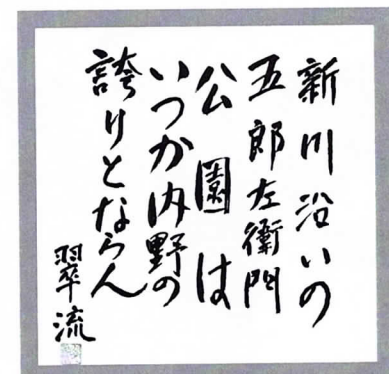 新川沿いの
五郎左衛門
公園は
いつか内野の
誇りとならん
翠流